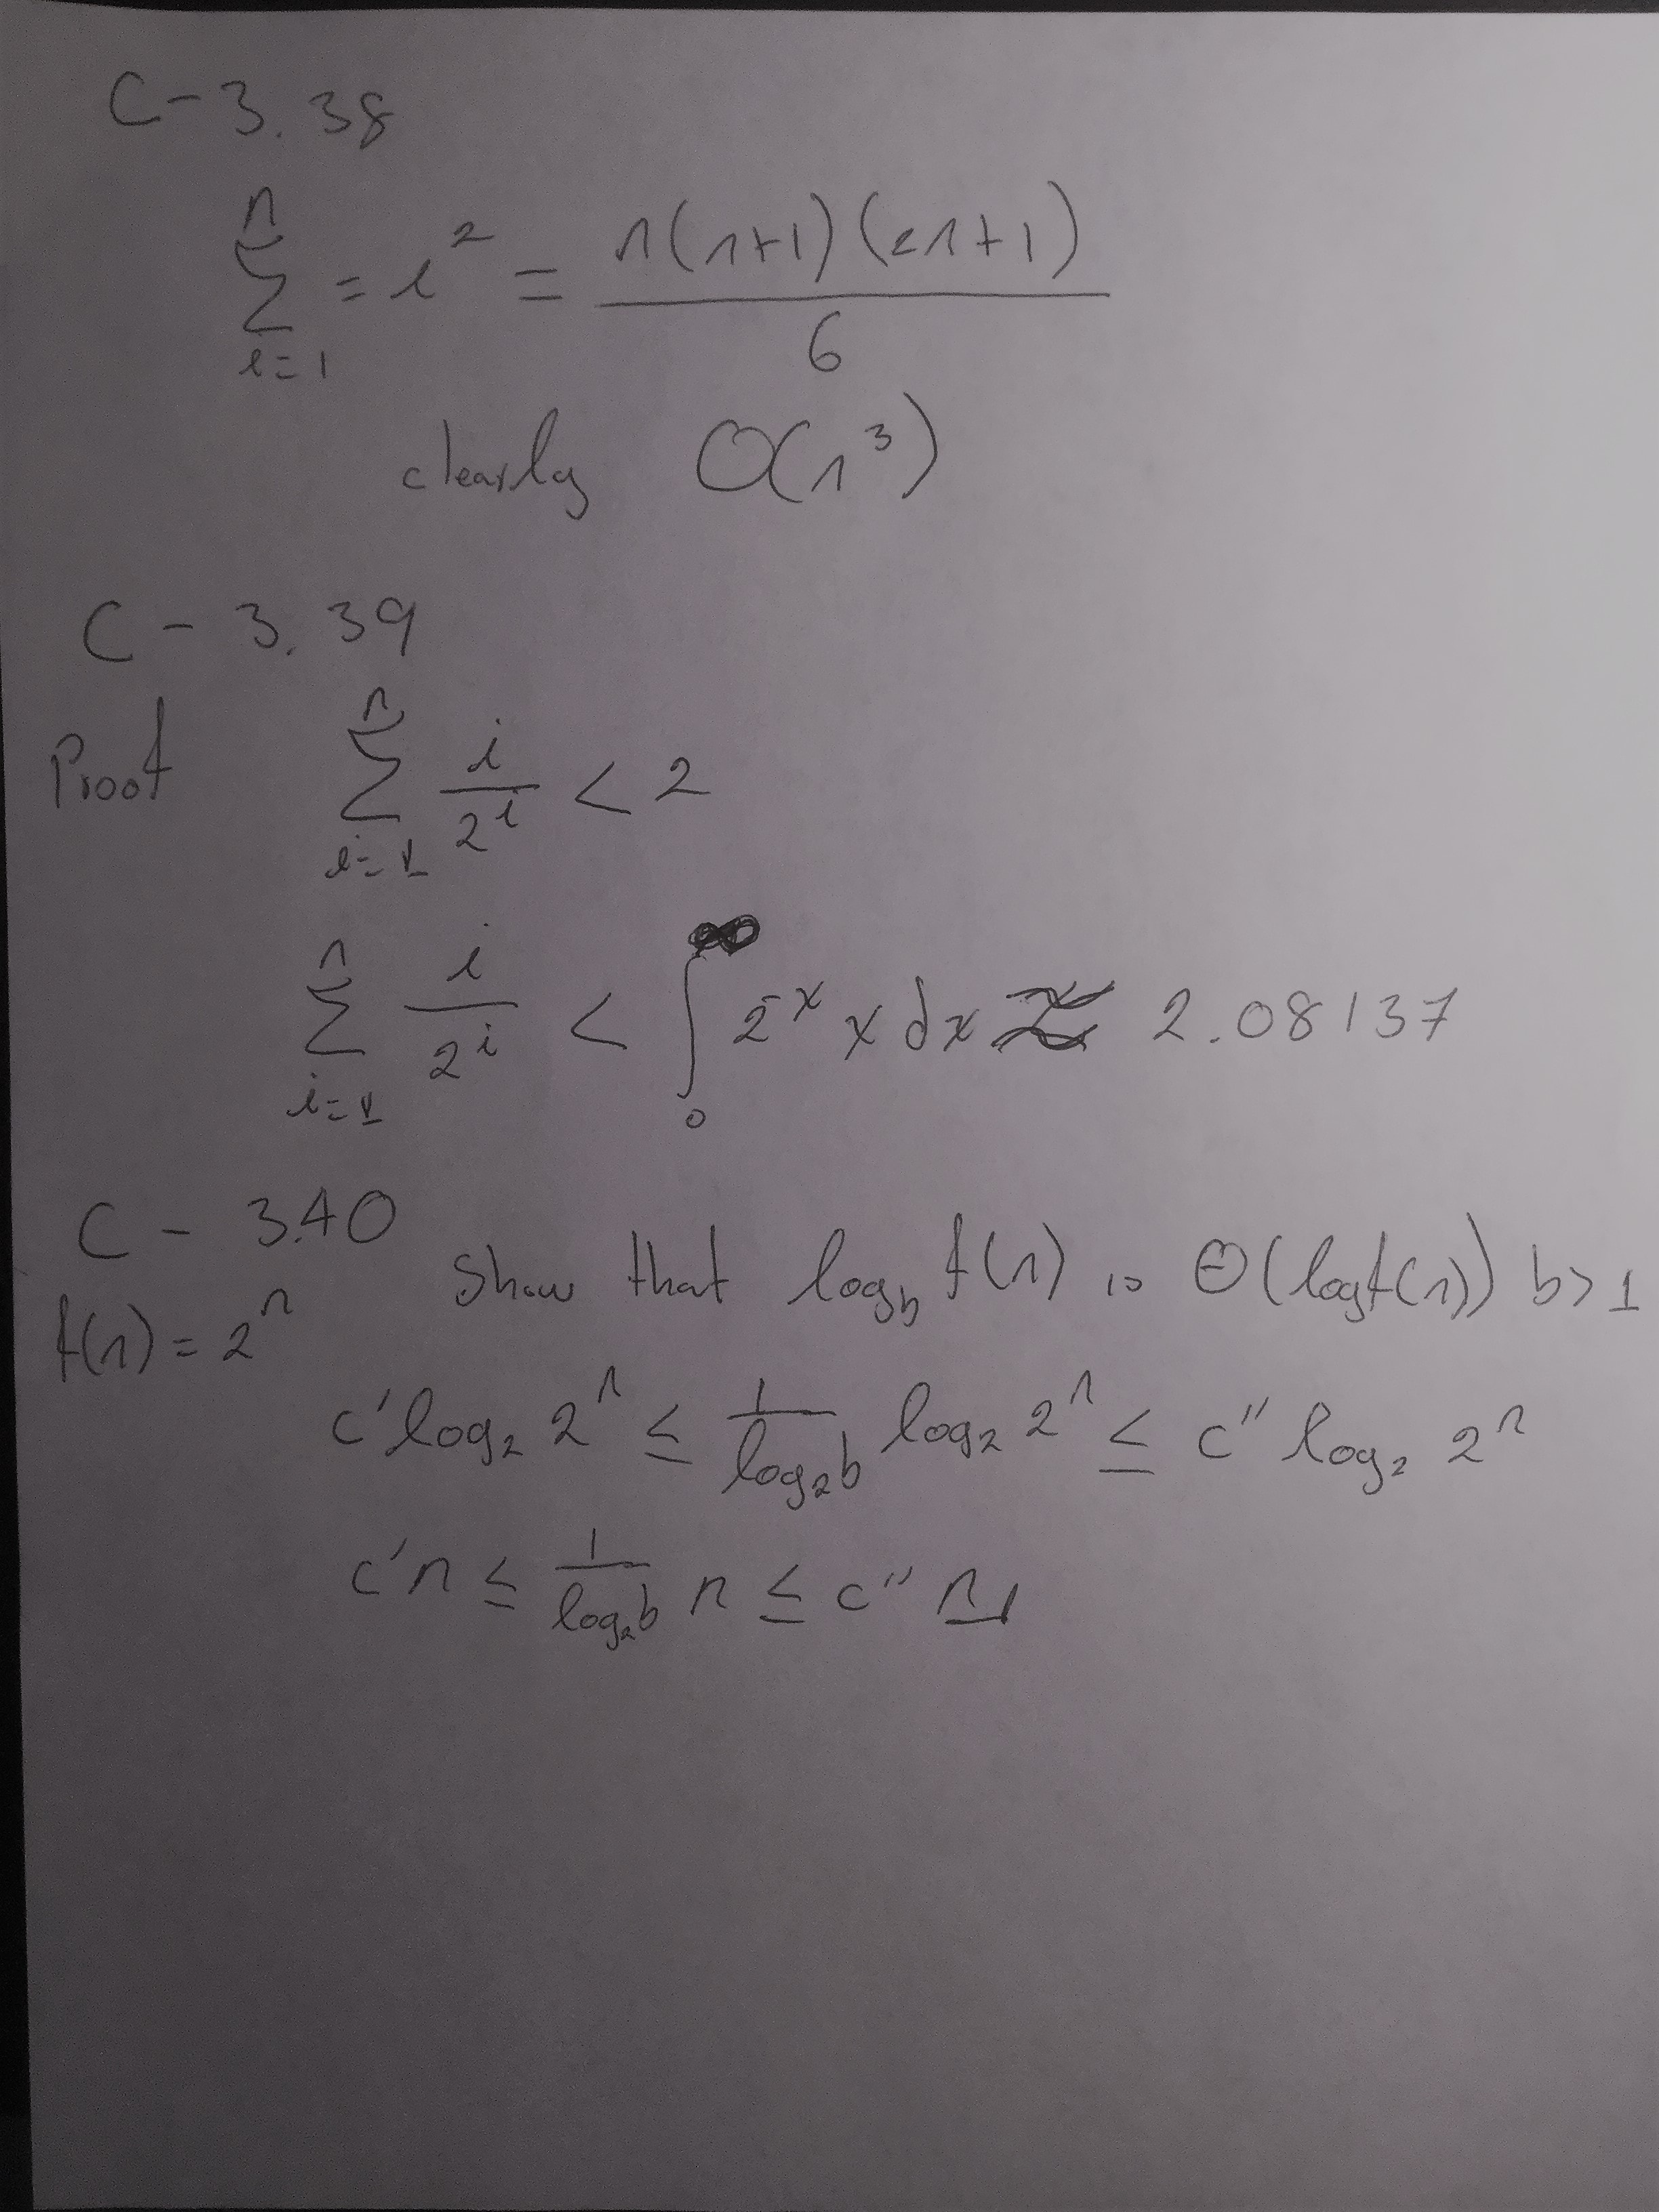 C-3.38
n
∑ = i² = n(n+1)(2n+1)
i=1
6
clearly O(n³)
C-3.39
Proof ∑_{i=1}^{n} i/2^i < 2
∑_{i=1}^{n} i/2^i < ∫_0^∞ 2^{-x} x dx ≈ 2.08137
C-3.40
Show that log_b f(n) is Θ(log f(n)) b>1
f(n) = 2^n
c' log₂ 2^n ≤ 1/(log₂b) log₂ 2^n ≤ c'' log₂ 2^n
c'n ≤ 1/(log₂b) n ≤ c'' n